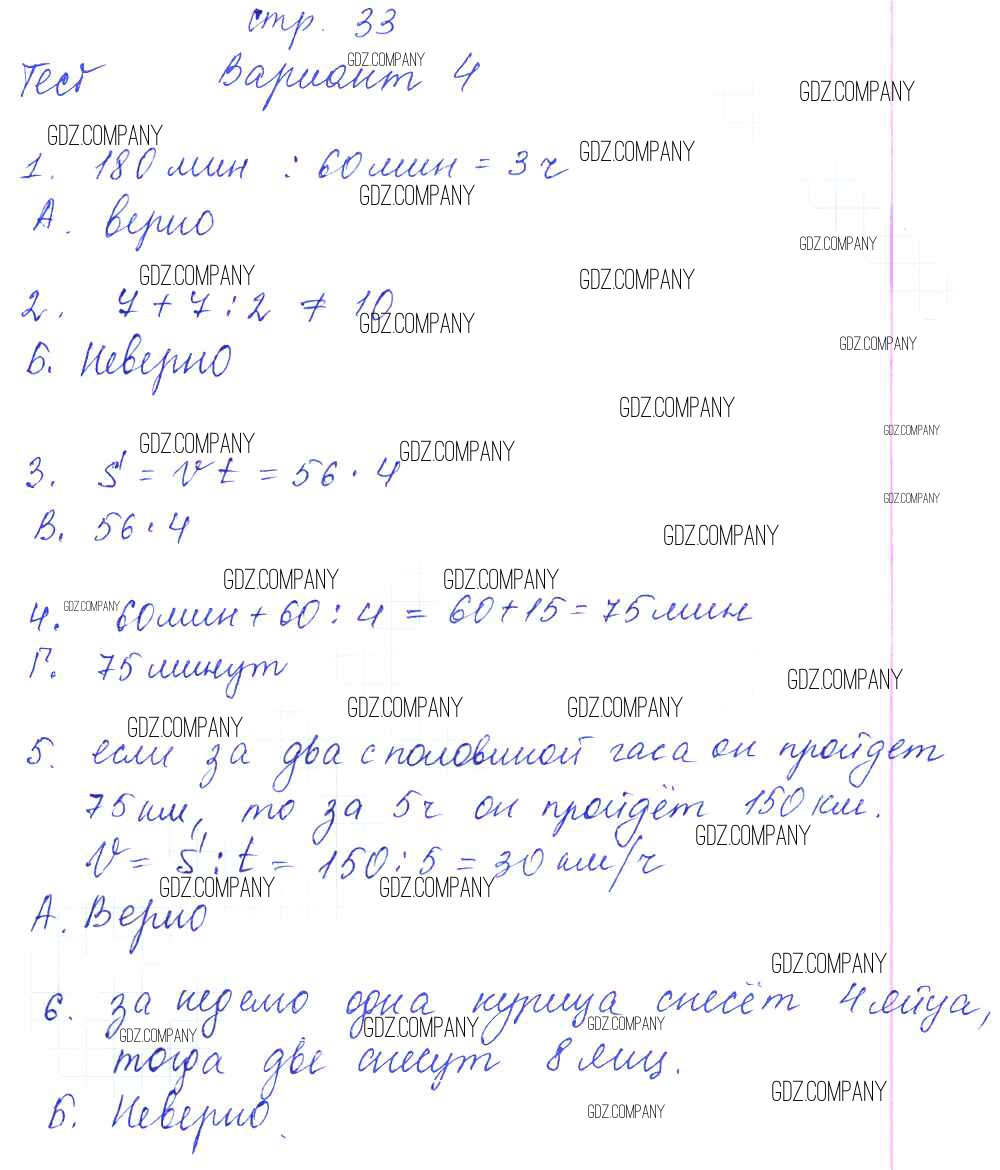 стр. 33
Тест Вариант 4
1. 180 мин : 60 мин = 3 ч
А. верно
2. 7 + 7 : 2 ≠ 10
Б. Неверно
3. S = v t = 56 · 4
В. 56 · 4
4. 60 мин + 60 : 4 = 60 + 15 = 75 мин
Г. 75 минут
5. если за два с половиной часа он пройдет
75 км, то за 5 ч он пройдёт 150 км.
V = S : t = 150 : 5 = 30 км/ч
А. Верно
6. за неделю одна курица снесёт 4 яйца,
тогда две снесут 8 яиц.
Б. Неверно.
GDZ.COMPANY